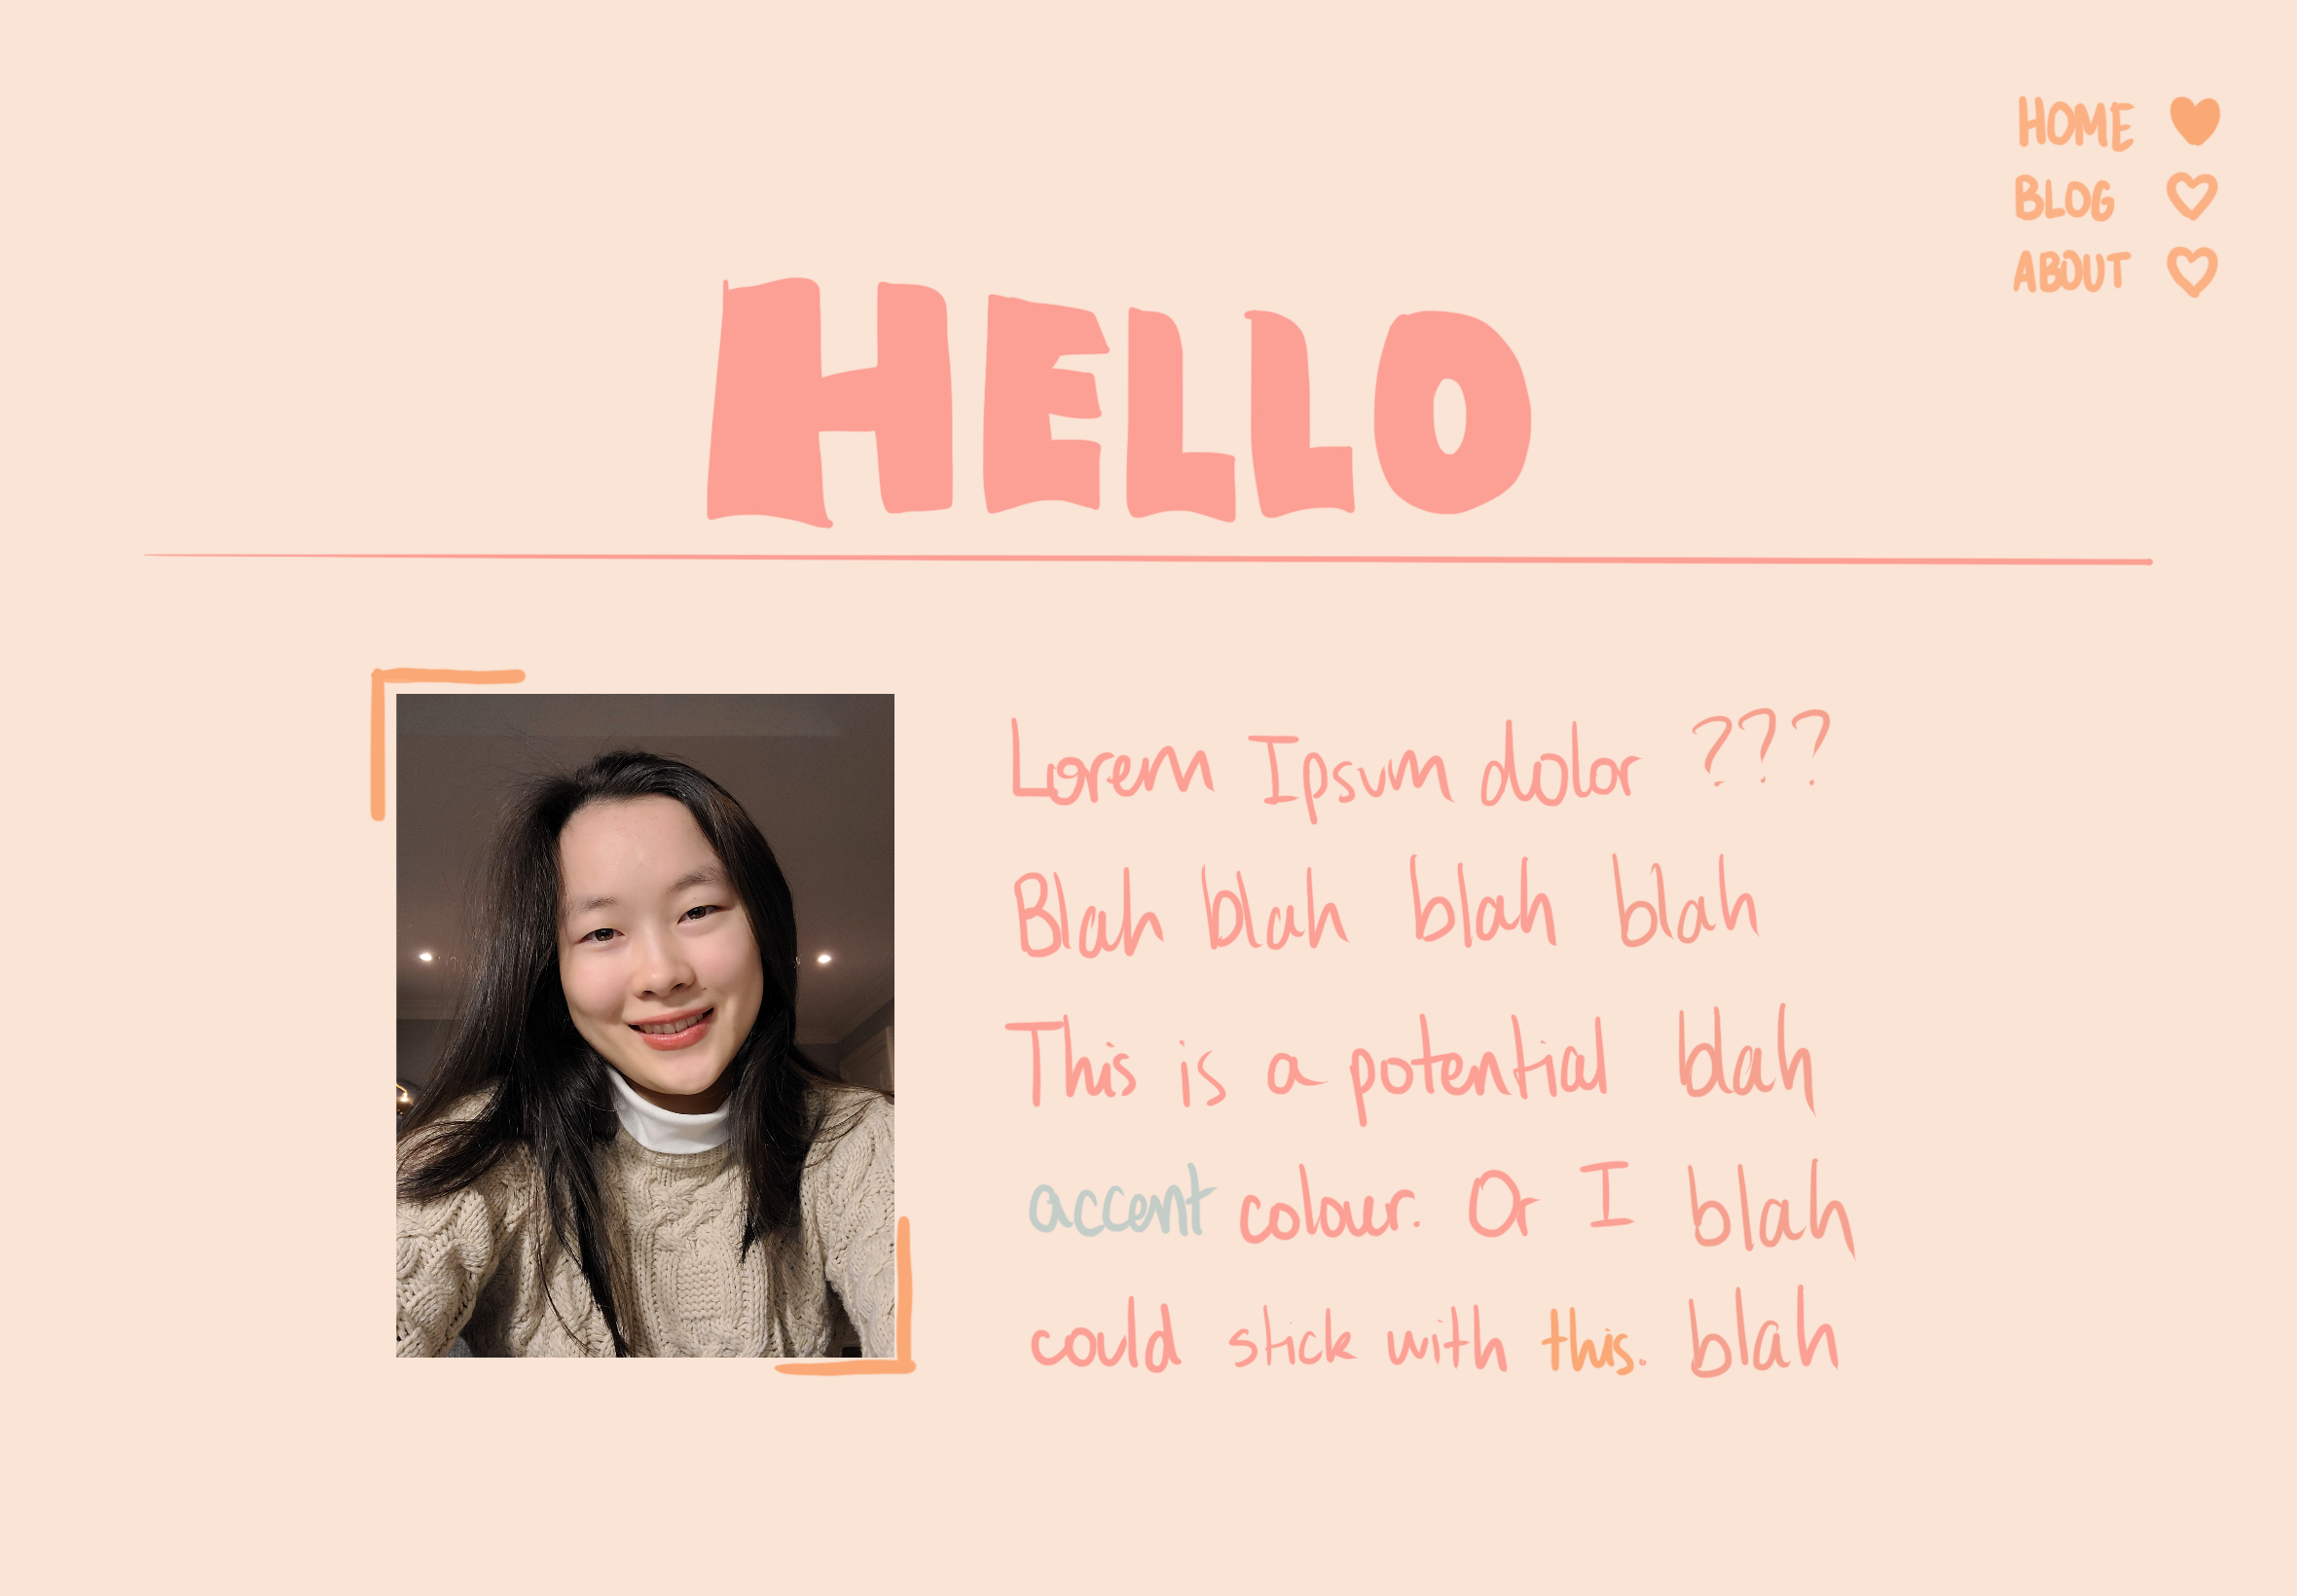 HOME
BLOG
ABOUT
HELLO
Lorem Ipsum dolor ???
Blah blah blah blah
This is a potential blah
accent colour. Or I blah
could stick with this. blah